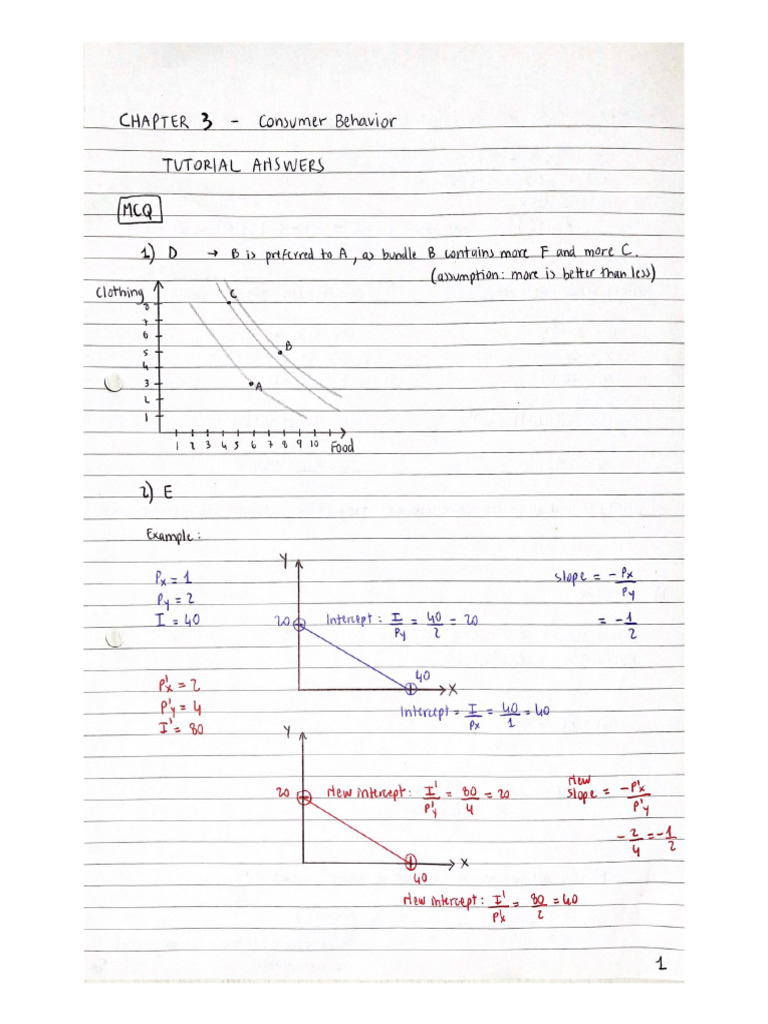 CHAPTER 3 - Consumer Behavior
TUTORIAL ANSWERS
MCQ
1) D → B is preferred to A, as bundle B contains more F and more C.
(assumption: more is better than less)
Clothing
C
8
7
6
5
4
3
2
1
B
A
1 2 3 4 5 6 7 8 9 10 Food
2) E
Example:
Px = 1
Py = 2
I = 40
Y
20 Intercept: I/Py = 40/2 = 20
slope = -Px/Py
= -1/2
40
X
Intercept = I/Px = 40/1 = 40
P'x = 2
P'y = 4
I' = 80
Y
20 New intercept: I'/P'y = 80/4 = 20
New slope = -P'x/P'y
-2/4 = -1/2
X
40
New intercept: I'/P'x = 80/2 = 40
1